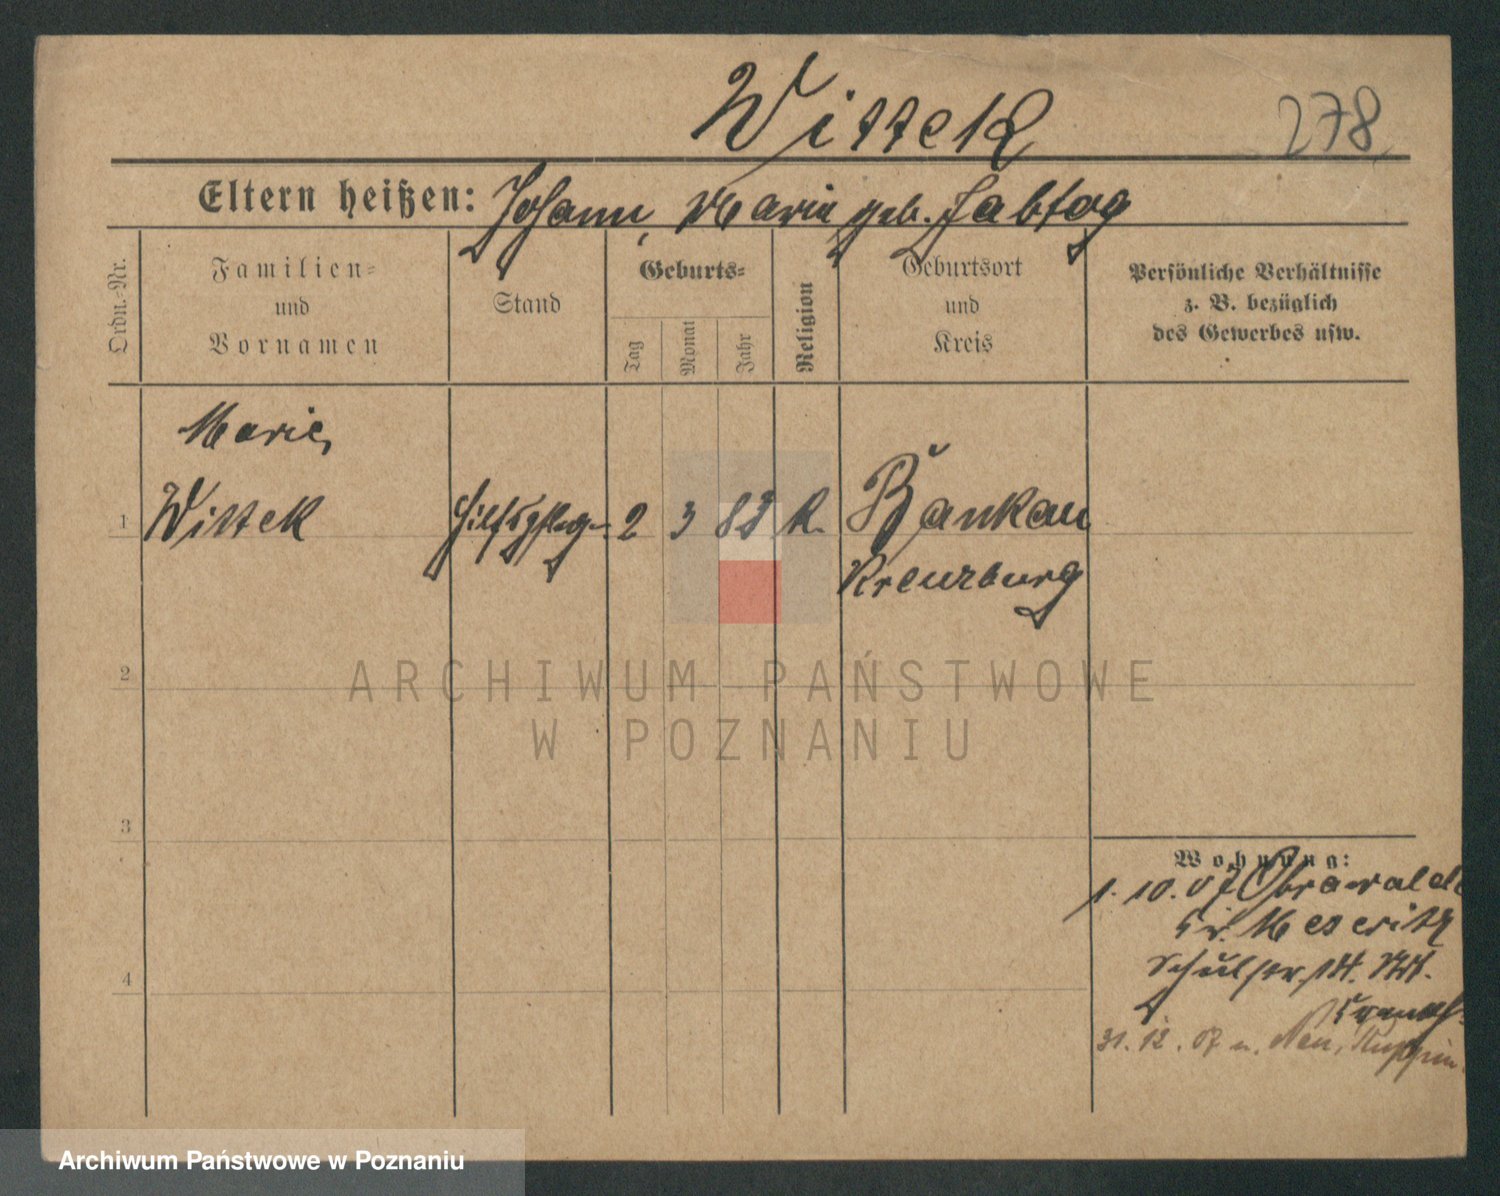 Wittek
278
Eltern heißen: Johann, Marie geb. Sabtag
Ordn.-Nr.
Familien-
und
Vornamen
Stand
Geburts-
Tag
Monat
Jahr
Religion
Geburtsort
und
Kreis
Persönliche Verhältnisse
z. B. bezüglich
des Gewerbes usw.
Marie,
1 Wittek Hilfspfleg. 2 3 82 k. Bankau
Kreuzburg
2
3
4
Wohnung:
1. 10. 07 Obrawalde
Kr. Meseritz
31. 12. 07 n. Neu Ruppin
ARCHIWUM PAŃSTWOWE
W POZNANIU
Archiwum Państwowe w Poznaniu